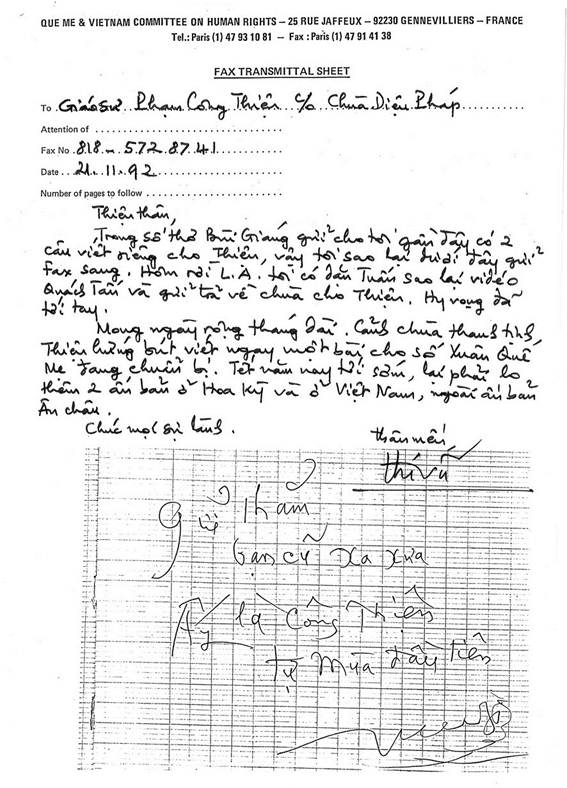 QUE ME & VIETNAM COMMITTEE ON HUMAN RIGHTS – 25 RUE JAFFEUX – 92230 GENNEVILLIERS – FRANCE
Tel.: Paris (1) 47 93 10 81 – Fax : Paris (1) 47 91 41 38
FAX TRANSMITTAL SHEET
To Giáo sư Phạm Công Thiện c/o Chùa Diệu Pháp
Attention of
Fax No 818 - 572.87.41
Date 21.11.92
Number of pages to follow
Thiện thân,
Trong số thơ Bùi Giáng gửi cho tôi gần đây có 2
câu viết riêng cho Thiện, vậy tôi sao lại dưới đây gửi
Fax sang. Hôm rời L.A. tôi có dặn Tuấn sao lại vidéo
Quách Tấn và gửi trả về chùa cho Thiện. Hy vọng đã
tới tay.
Mong ngày rộng tháng dài. Cảnh chùa thanh tịnh,
Thiện hứng bút viết ngay một bài cho số Xuân Quê
Mẹ đang chuẩn bị. Tết năm nay tới sớm, lại phải lo
thêm 2 ấn bản ở Hoa Kỳ và ở Việt Nam, ngoài ấn bản
Âu châu.
Chúc mọi sự lành.
thân mến,
thivũ
Gửi thăm
bạn cũ xa xưa
Ấy là Công Thiện
tự mùa đầu tiên